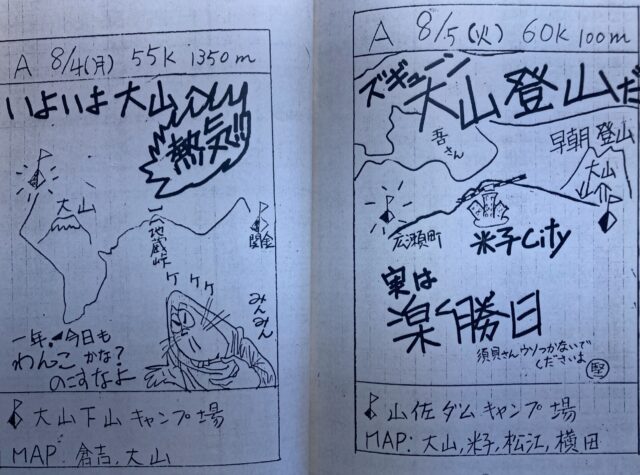 A 8/4(月) 55K 1350m
いよいよ大山
熱気!!
大山
地蔵峠
関金
ケケケ
みんみん
一年、今日も
わんこ かな?
のこすなよ
大山下山キャンプ場
MAP: 倉吉, 大山
A 8/5(火) 60K 100m
ズギューン
大山登山だ
吾さん
早朝登山
大山
広瀬町
米子City
実は
楽勝日
須貝さんウソつかないで
くださいよ
堅
山佐ダムキャンプ場
MAP: 大山, 米子, 松江, 横田